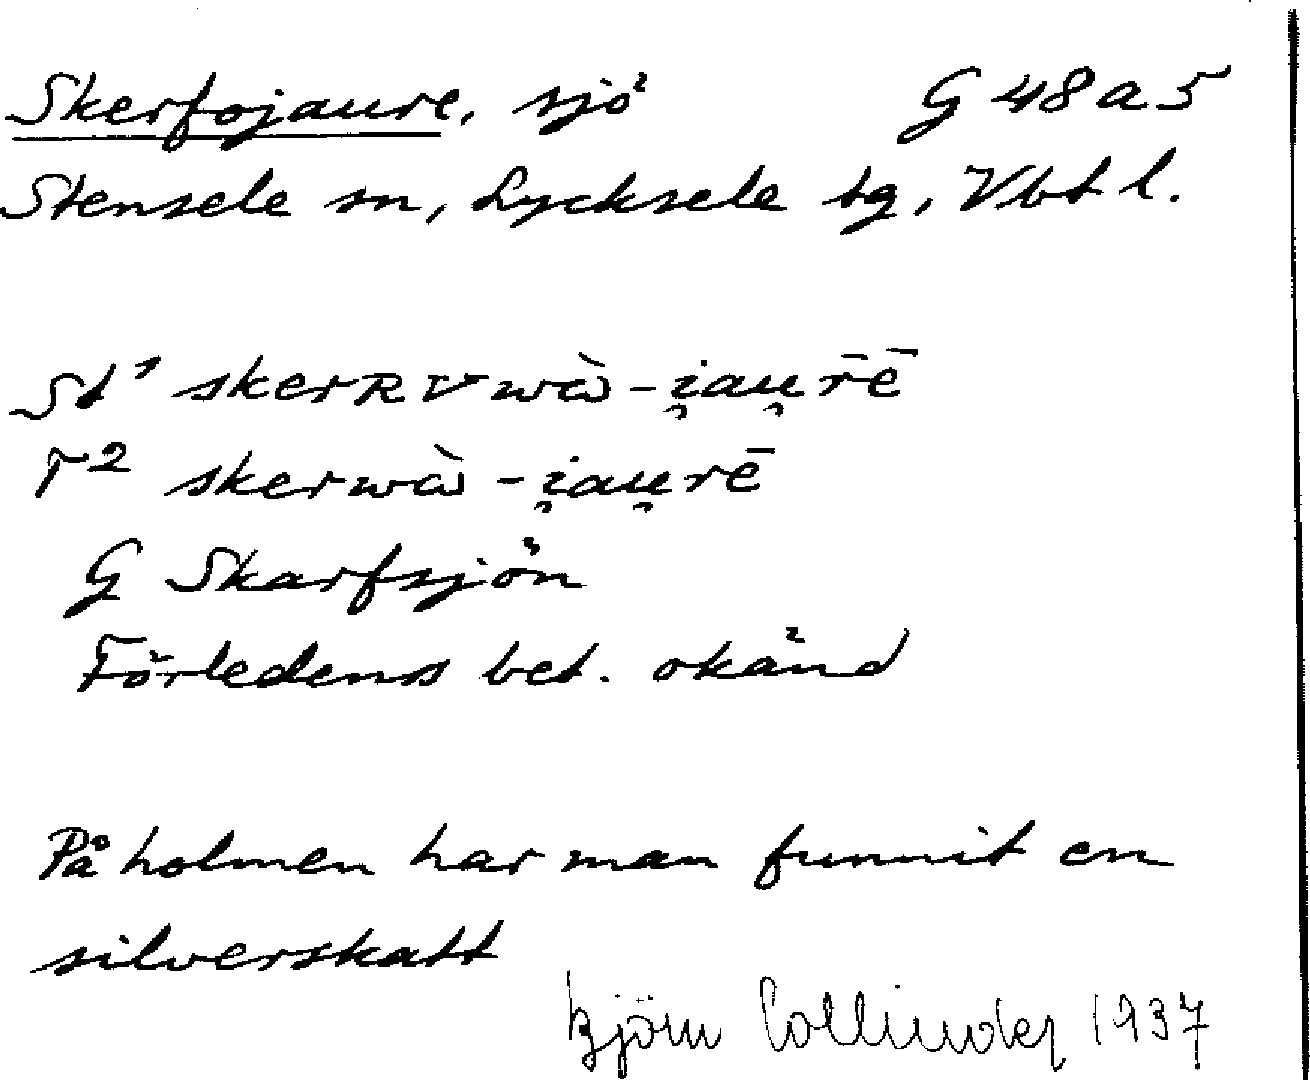 Skerfojaure, sjö G 48 a 5
Stensele sn, Lycksele tg, Vbt l.
St¹ skerRVwɑ̀-i̯au̯r̄ē
T² skerwɑ̀-i̯au̯rē
G Skarfsjön
Förledens bet. okänd
På holmen har man funnit en
silverskatt
Björn Collinder 1937